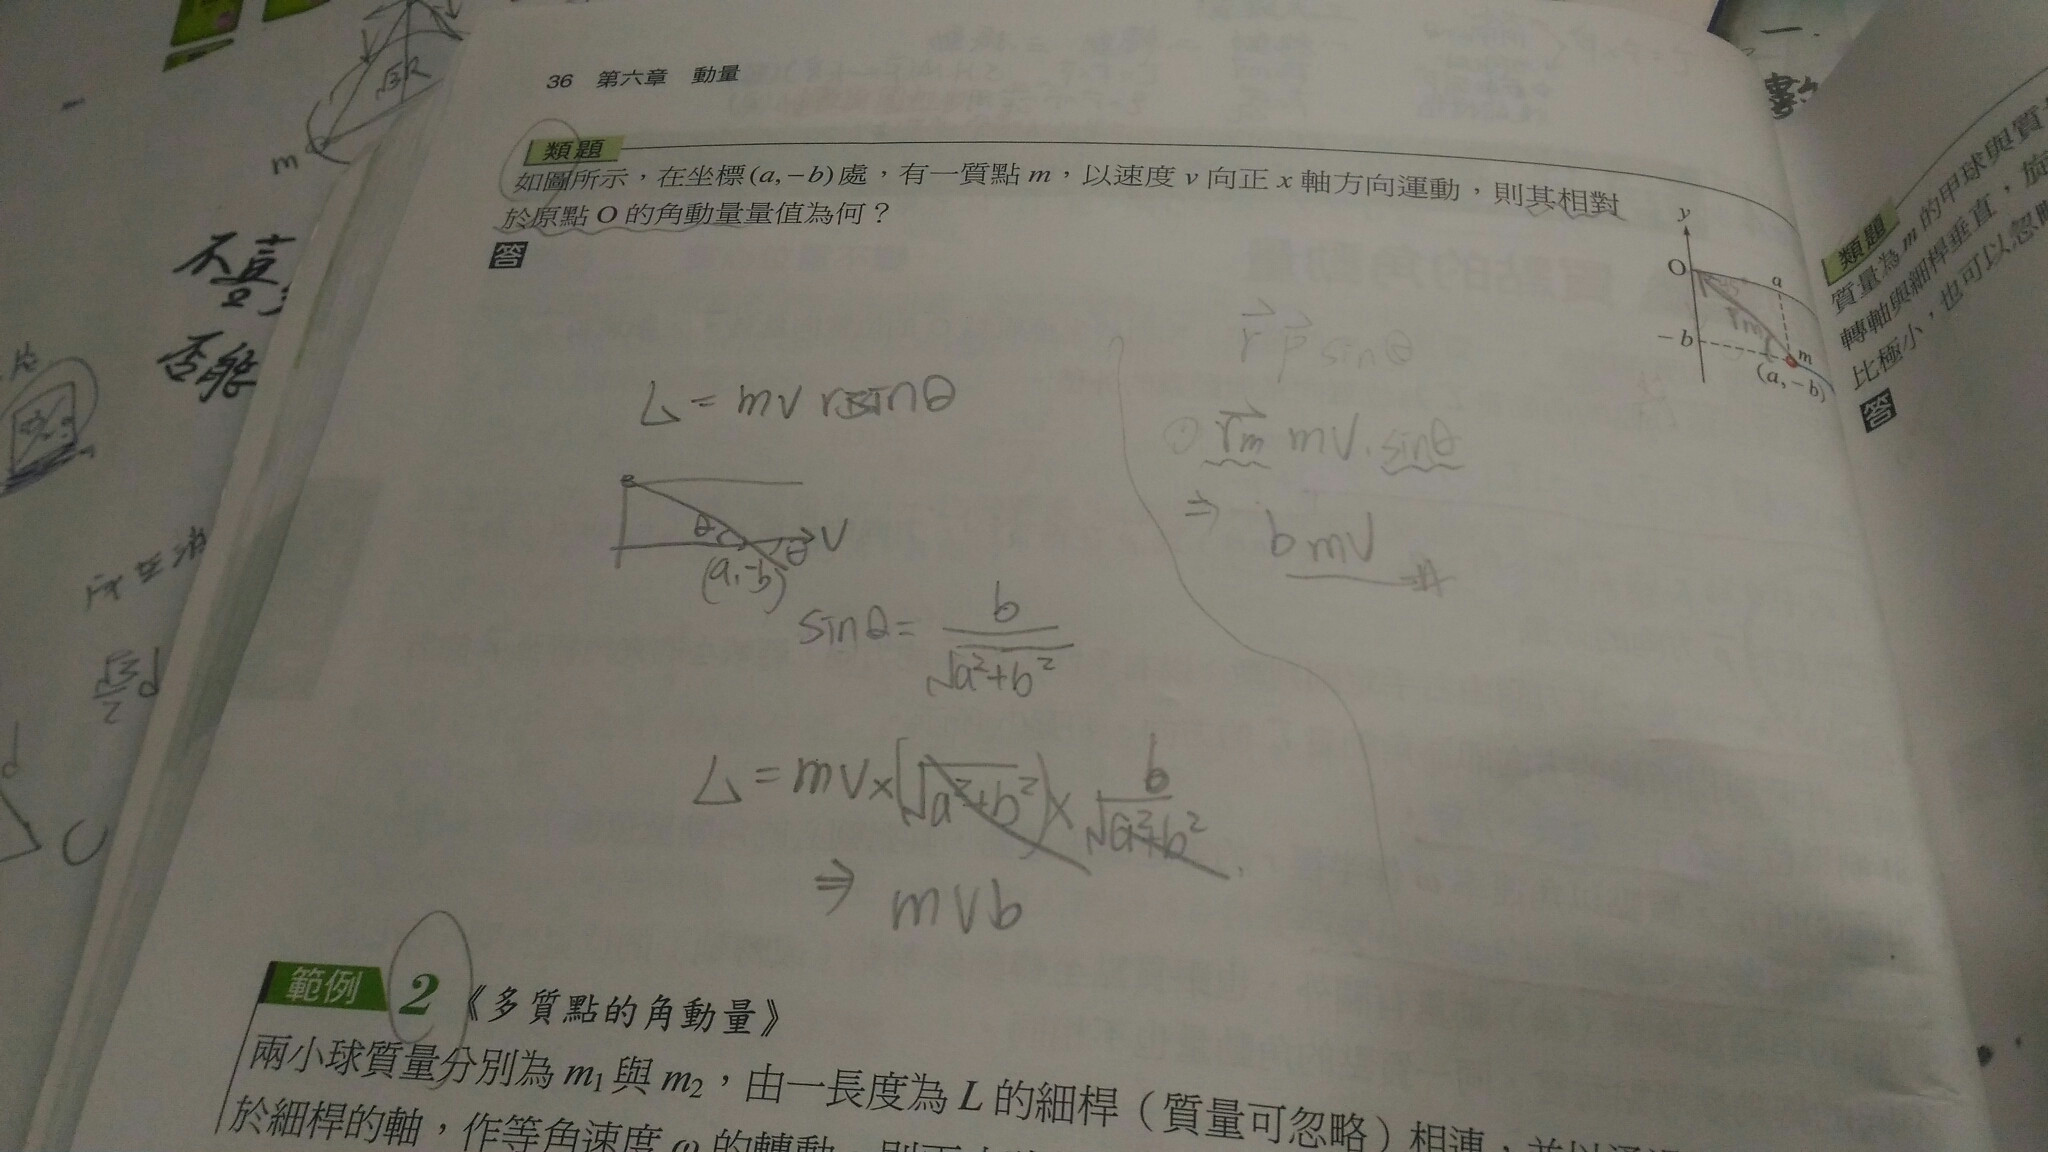 36 第六章 動量
類題
如圖所示，在坐標(a, −b)處，有一質點 m，以速度 v 向正 x 軸方向運動，則其相對
於原點 O 的角動量量值為何？
答
y
O
a
rm
−b
m
(a, −b)
L = mv r sinθ
θ
V
θ
(a,-b)
sinθ = b/√a²+b²
L = mv×(√a²+b²)× b/√a²+b²
⇒ mvb
r⃗ p⃗ sinθ
r⃗m mv. sinθ
⇒ bmv
範例 2 《多質點的角動量》
兩小球質量分別為 m₁ 與 m₂，由一長度為 L 的細桿（質量可忽略）相連，並以通過
於細桿的軸，作等角速度 ω 的轉動，則
類題
質量為 m 的甲球與質
轉軸與細桿垂直，旋
比極小，也可以忽略
答
m
否能
C
d